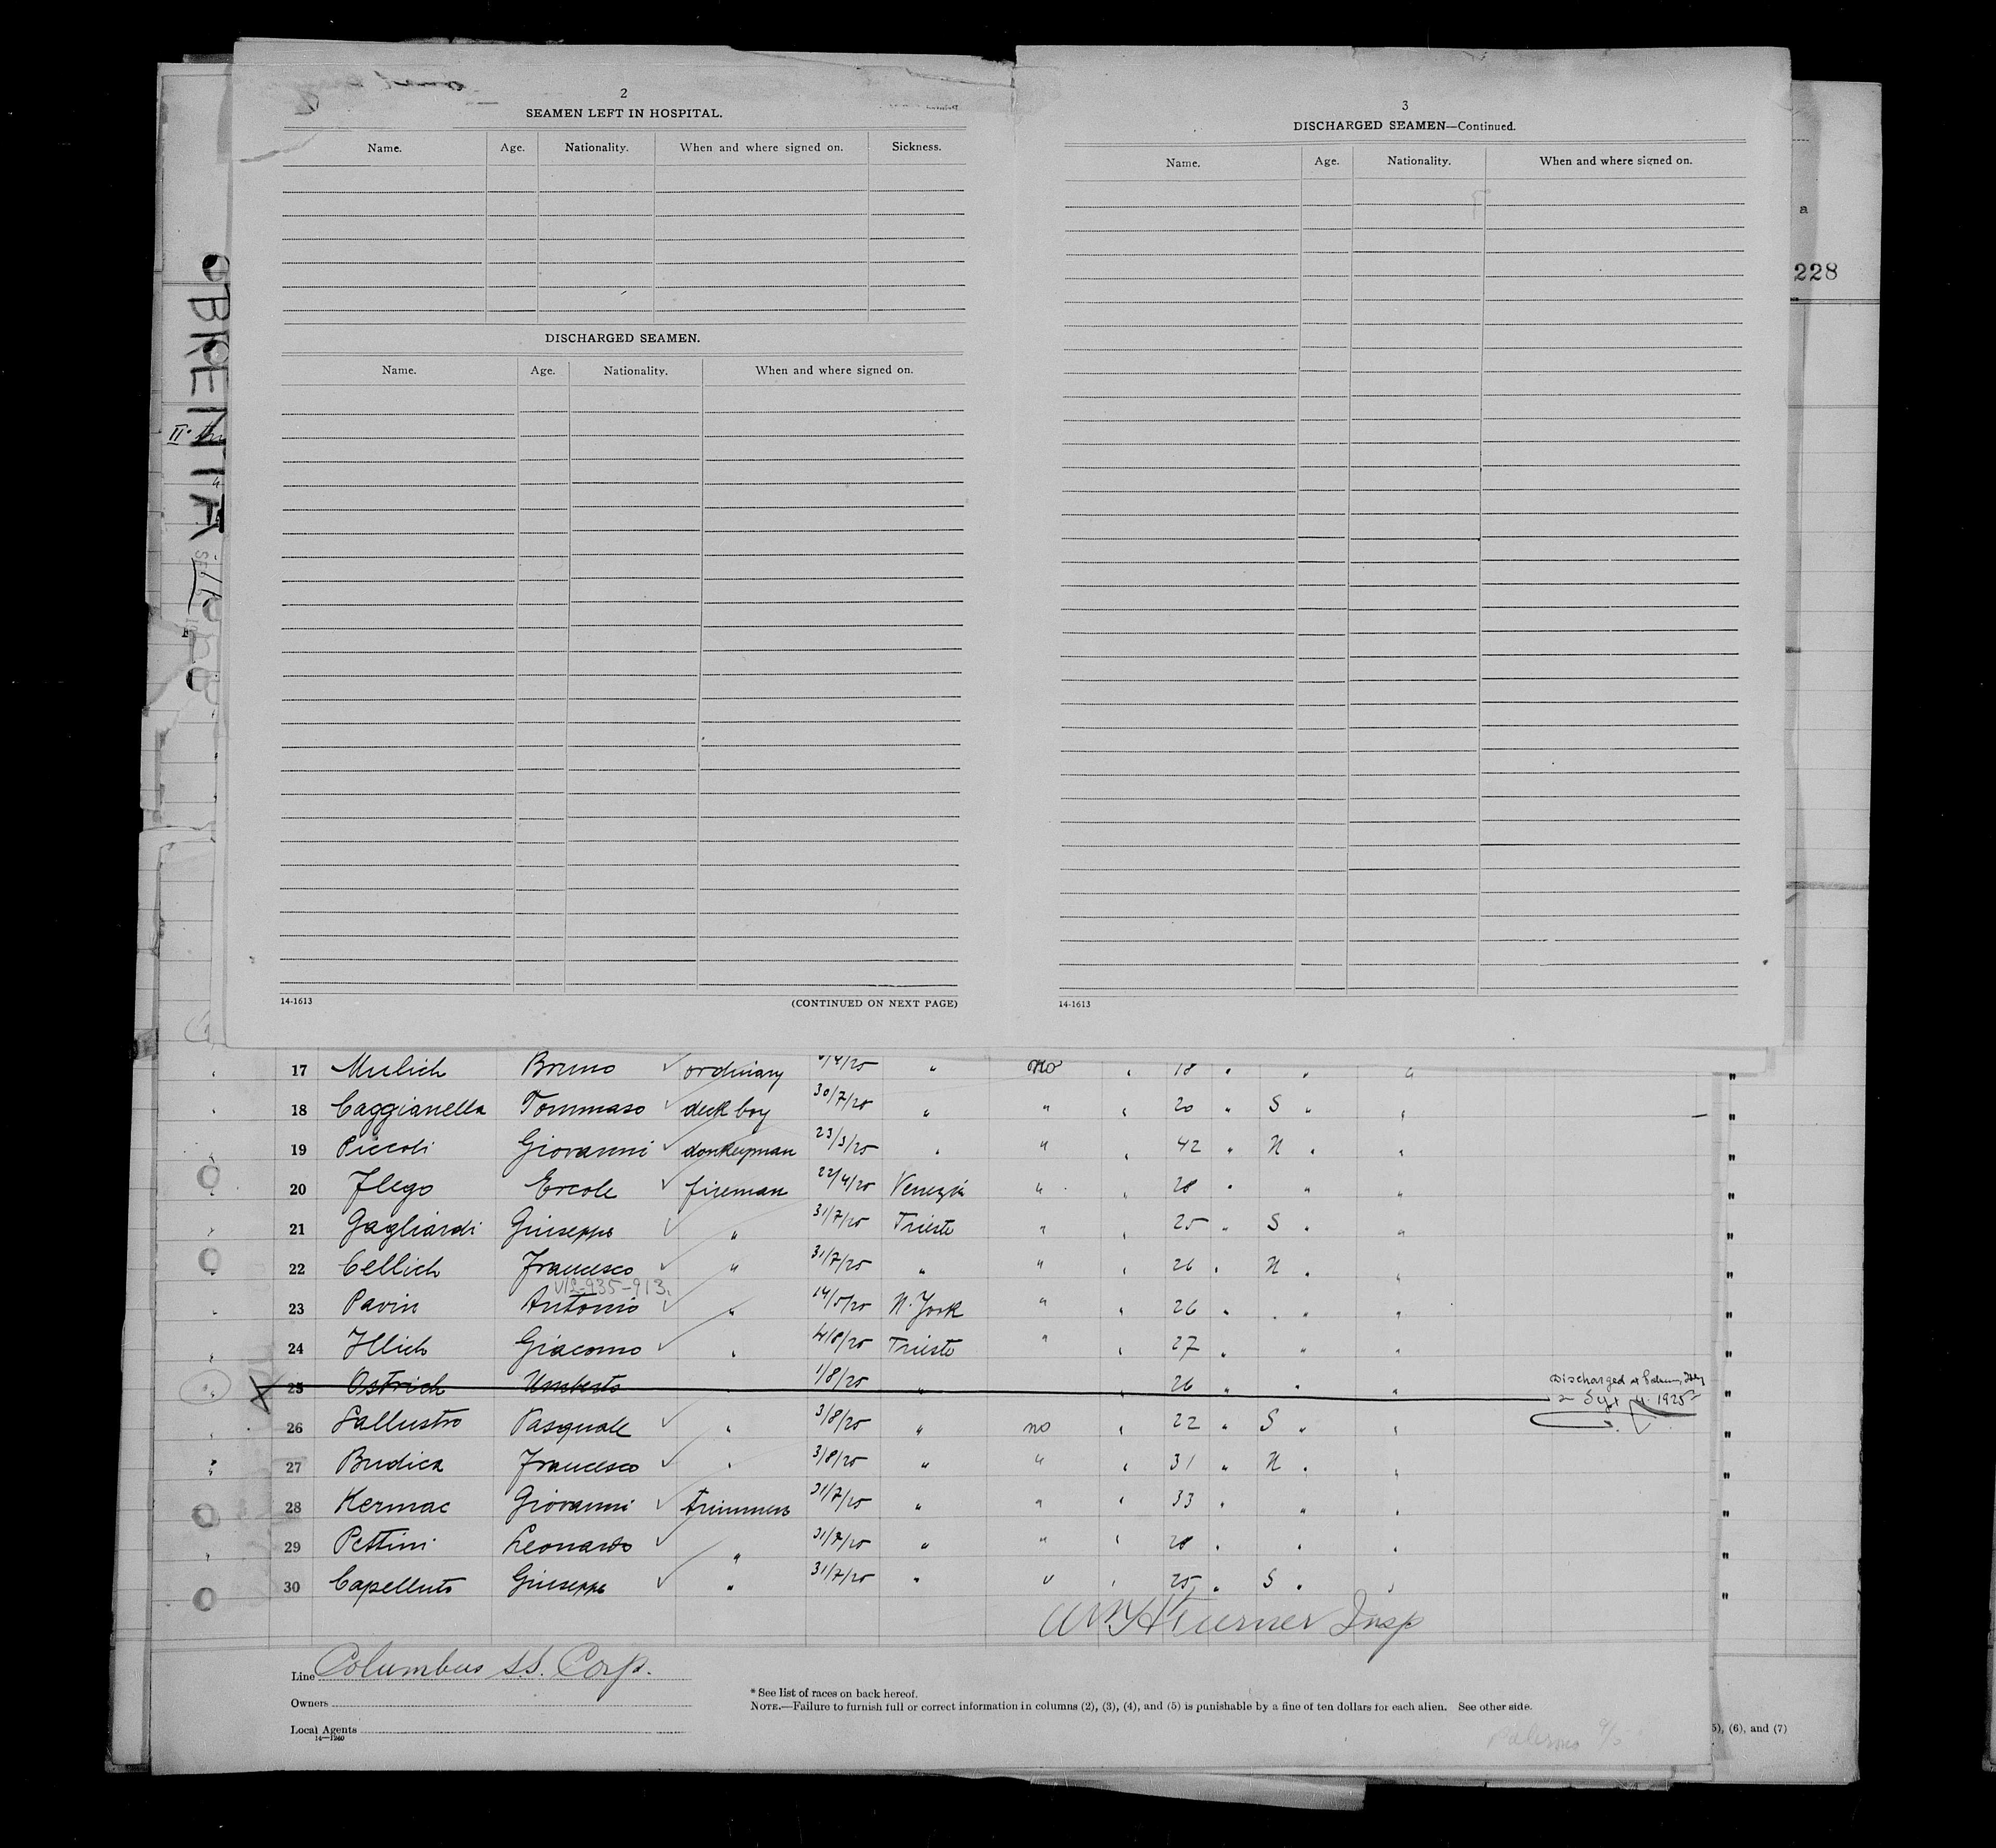 2
SEAMEN LEFT IN HOSPITAL.
Name. Age. Nationality. When and where signed on. Sickness.
DISCHARGED SEAMEN.
Name. Age. Nationality. When and where signed on.
14-1613 (CONTINUED ON NEXT PAGE)
3
DISCHARGED SEAMEN—Continued.
Name. Age. Nationality. When and where signed on.
14-1613
a
228
BRENTA
17 Mulich Bruno ✓ ordinary /4/25 " no " 18 " " "
18 Caggianella Tommaso ✓ deck boy 30/7/25 " " " 20 " S " " —
19 Piccoli Giovanni ✓ donkeyman 23/3/25 " " " 42 " N " "
20 Flego Ercole ✓ fireman 22/4/25 Venezia " " 28 " " "
21 Gagliardi Giuseppe ✓ " 31/7/25 Trieste " " 25 " S " "
22 Cellich Francesco ✓ " 31/7/25 " " " 26 " N " "
V/L-935-913.
23 Pavin Antonio ✓ " 14/5/25 N. York " " 26 " " "
24 Illich Giacomo ✓ " 4/8/25 Trieste " " 27 " " "
25 Ostrich Umberto " 1/8/25 " " 26 " " " Discharged at Palermo, Italy
Sept 4 1925
26 Sallustro Pasquale ✓ " 3/8/25 " no " 22 " S " "
27 Budica Francesco ✓ " 3/8/25 " " " 31 " N " "
28 Kermac Giovanni ✓ trimmers 31/7/25 " " " 33 " " "
29 Pettini Leonardo ✓ " 31/7/25 " " " 28 " " "
30 Capelluto Giuseppe ✓ " 31/7/25 " " " 25 " S " "
Wm H Turner Insp
Line Columbus S.S. Corp.
Owners
Local Agents
14—1240
* See list of races on back hereof.
NOTE.—Failure to furnish full or correct information in columns (2), (3), (4), and (5) is punishable by a fine of ten dollars for each alien. See other side.
Palermo 9/5
5), (6), and (7)